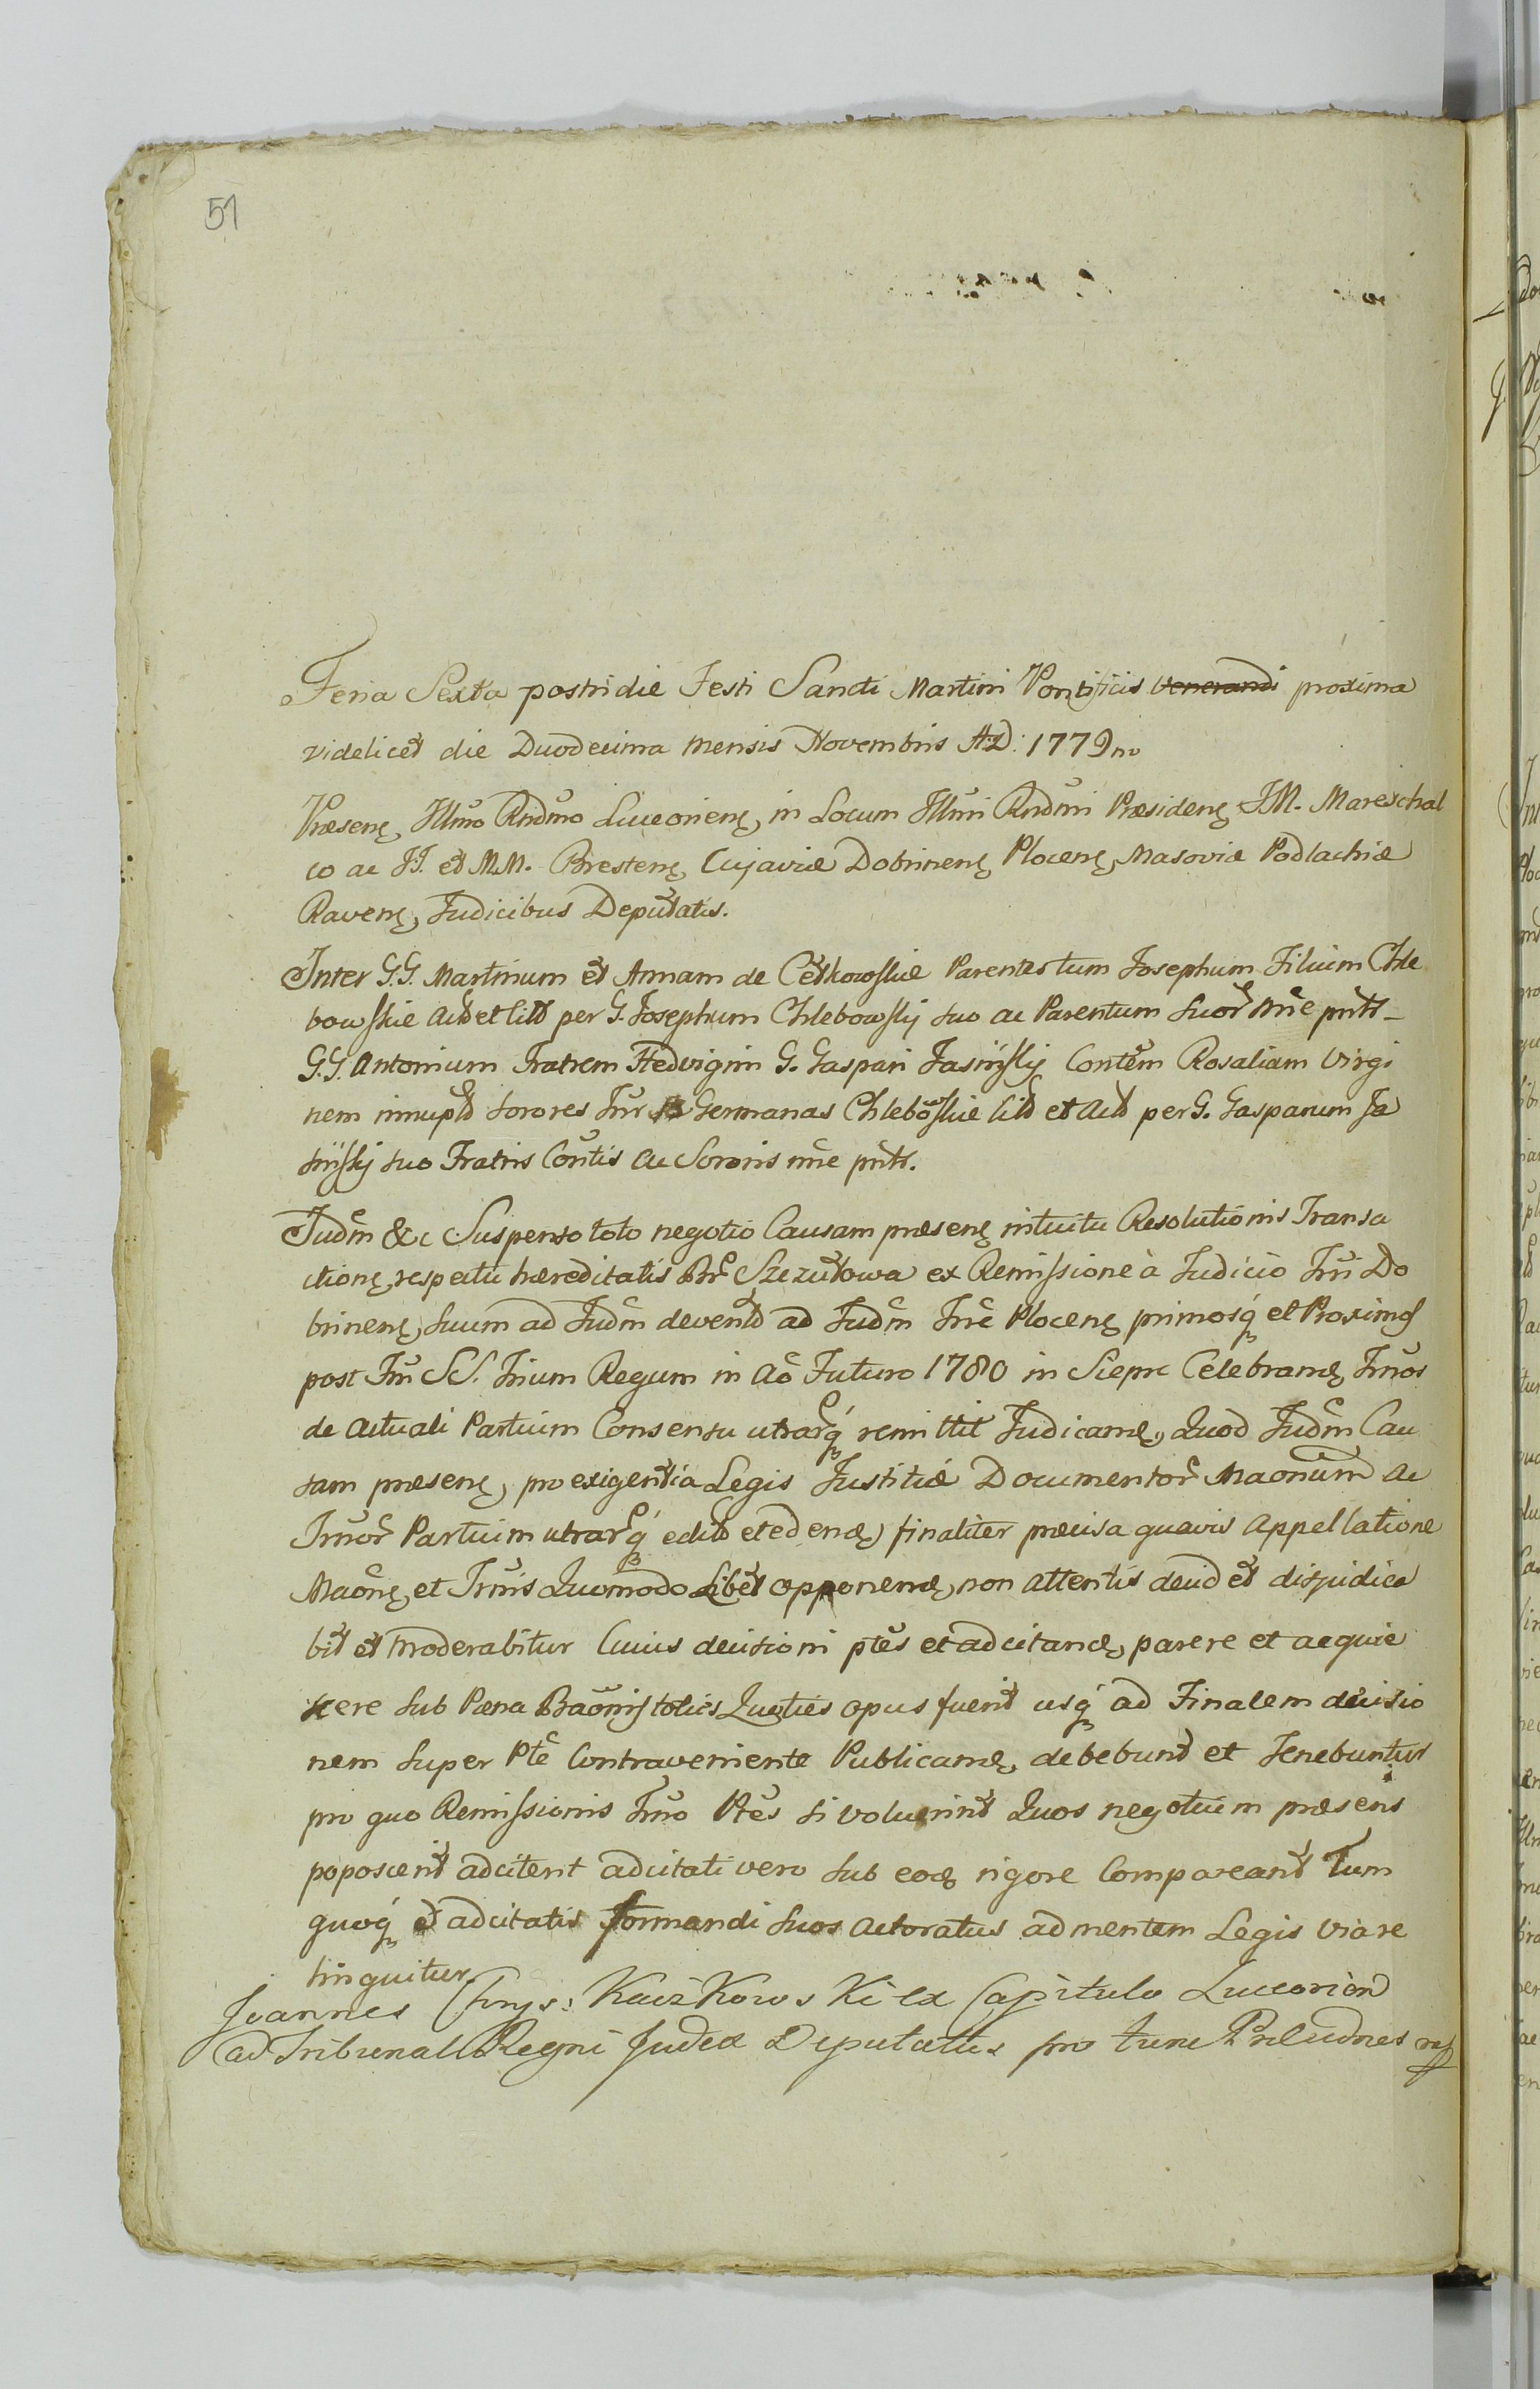 51
Feria Sexta postridie Festi Sancti Martini Pontificis venerandi proxima
videlicet die Duodecima mensis Novembris A.D: 1779no
Præsenę, Illmo Rndmo Luceorienę, in Locum Illmi Rndmi Præsidenę J.M. Mareschal
co ac JJ. et M.M. Brestenę, Cujaviæ Dobrinenę Plocenę, Masoviæ Podlachiæ
Ravenę, Judicibus Deputatis.
Inter G.G. Martinum et Annam de Cetkowskie Parentes tum Josephum Filium Chle
bowskie act et cit per G. Josephum Chlebowskij suo ac Parentum suor nne pntt
G.G. Antonium Fratrem Hedvigim G. Gaspari Jasinskij Contem Rosaliam Virgi
nem innupt Sorores Inr Germanas Chleboskie cit et act per G. Gasparum Ja
sinskij suo Fratris Contis ac Sororis nne pntt.
Judm &c Suspenso toto negotio Causam præsenę intuitu Resolutionis Transa
ctionę, respectu hæreditatis Bnr Szczutowa ex Remissione à Judicio Trri Do
brinenę, suum ad Judm devent ad Judm Trre Plocenę primosq et Proximos
post Fm SS. Trium Regum in Ao Futuro 1780 in Siepre Celebrandę, Trnos
de actuali Partium Consensu utrarq remittit Judicandę, Quod Judm Cau
sam præsenę, pro exigentia Legis Justitiæ Documentor Maonum ac
Trnor Partium utrarq edit et edendę, finaliter præcisa quavis appellatione
Maonę, et Trnis Quomodo Libet opponendę, non attentis decid et dijudica
bit et moderabitur Cuius decisioni ptes et adcitandę, parere et acquie
scere sub Pæna Baonis toties Quoties opus fuerit usq ad Finalem decisio
nem super Pte Contraveniente Publicandę, debebunt et Tenebuntur
pro quo Remissionis Trno Ptes si voluerint Quos negotium præsens
poposcerit adcitent adcitati vero sub eodę rigore Compareant Tum
quoq et adcitatis formandi suos actoratus ad mentem Legis via re
linquitur.
Joannes Chrys: Kaczkowski ex Capitulo Luceorien
ad Tribunal Regni Judex Deputatus pro tunc